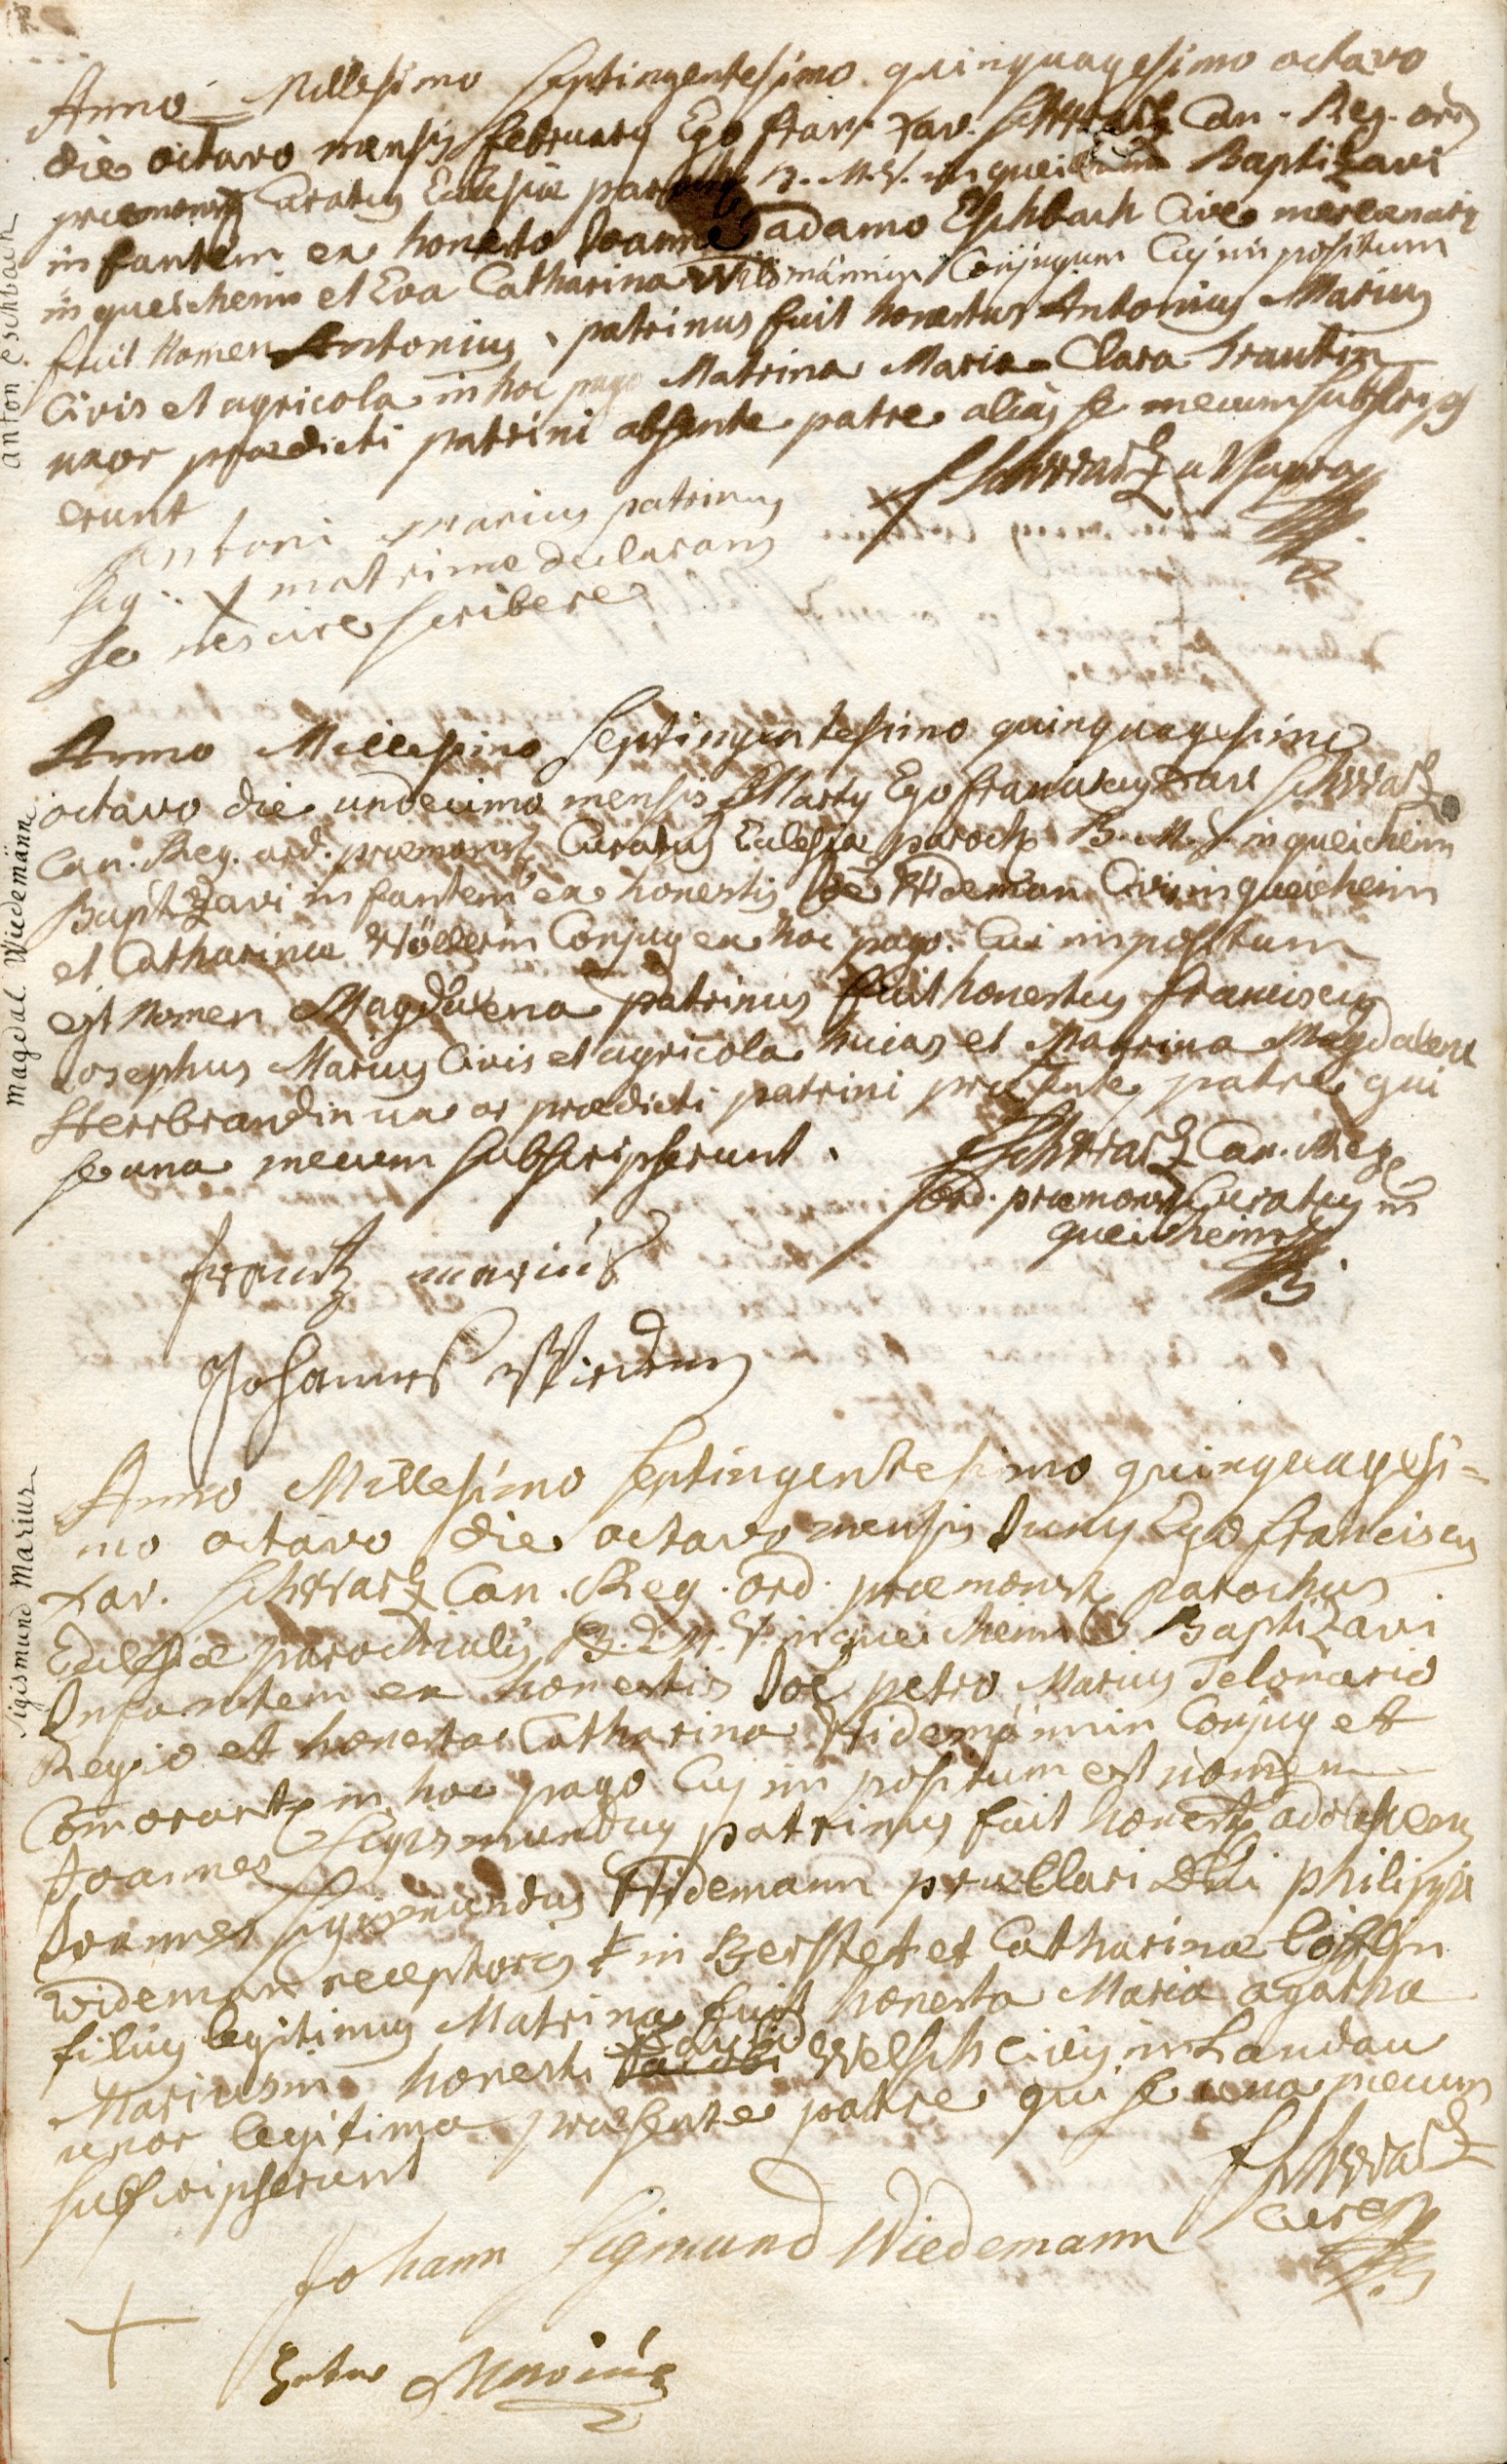 Anno Millesimo septingentesimo quinquagesimo octavo
die octavo mensis february Ego fran: Xav. Schwartz Can. Reg. ord
praemonst Curatus Eclesiae paroch B. M. V. in queicheim Baptizavi
infantem ex honesto Joanne adamo Eschbach Cive mercenario
in queicheim et Eva Catharina Widmännin Conjugum Cuj impositum
fuit Nomen Antonius, patrinus fuit honestus Antonius Marius
Civis et agricola in hoc pago Matrina Maria Clara Trautin
uxor praedicti patrini absente patre alias se mecum subscrips
erunt
F Schwartz ut supra
Antoni Marius patrinus
sig: X matrinae declarans
se nescire scribere
anton eschbach
Anno Millesimo septingentesimo quinquagesimo
octavo die undecimo mensis Marty Ego franciscus Xav Schwartz
Can. Reg. ord. praemonst Curatus Eclesiae paroch B. M. V. in queicheim
Baptizavi infantem ex honestis Joe Wideman Civis in queicheim
et Catharinae Wöllerin Conjug ex hoc pago. Cui impositum
est Nomen Magdalena patrinus fuit honestus franciscus
Josephus Marius Civis et agricola huias et Matrina Magdalena
Herrbrandin uxor praedicti patrini praesente patre qui
se una mecum subscripserunt.
F Schwartz Can. Reg.
ord. praemonst Curatus in
queicheim
frantz marius
Johannes Widman
magdal Wiedemänn
Anno Millesimo septingentesimo quinquagesi=
mo octavo die octavo mensis Juny Ego franciscus
Xav. Schwartz Can. Reg. ord. praemonst parochus
Eclesiae parochialis B. M. V. in queicheim Baptizavi
Infantem ex honestis Joe petro Marius Telonario
Regio et honesta Catharina Widemännin Conjug et
Comorant in hoc pago Cuj impositum est nomen
Joannes Sigismundus patrinus fuit honest adolescens
Joannes Sigismundus Widemann praeclari Dni philippi
Wideman receptoris in Berstet et Catharinae Löfflin
filius legitimus Matrina fuit honesta Maria agatha
Mariusin honesti Jacobi Welsch civis in Landau
uxor legitima praesente patre qui se una mecum
subscripserunt
F Schwartz
Curé
Johann Sigmund Wiedemann
+
Peter Marius
sigismund Marius